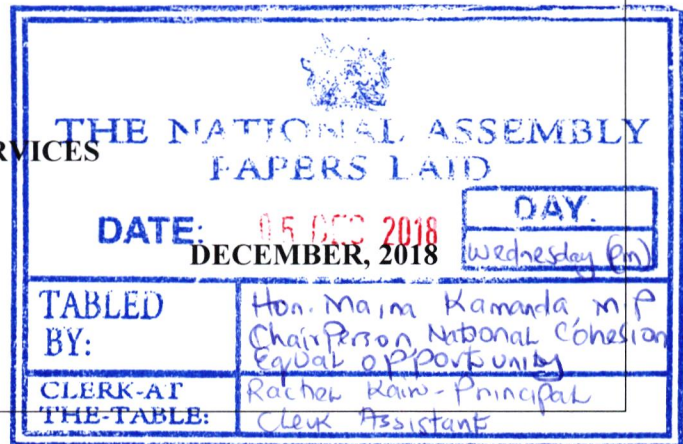 THE NATIONAL ASSEMBLY
RVICES
PAPERS LAID
DATE: 05 DEC 2018
DAY.
Wednesday (pm)
DECEMBER, 2018
TABLED BY:
Hon. Maina Kamanda, MP
ChairPerson National Cohesion
Equal opportunity
CLERK-AT THE-TABLE:
Rachel - Principal
Clerk Assistant